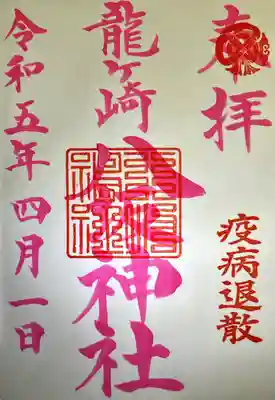 奉拝
疫病退散
龍ケ崎
八坂神社
令和五年四月一日